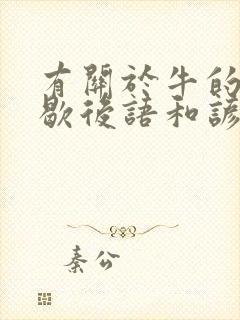 有關於牛的
歇後語和諺
秦公